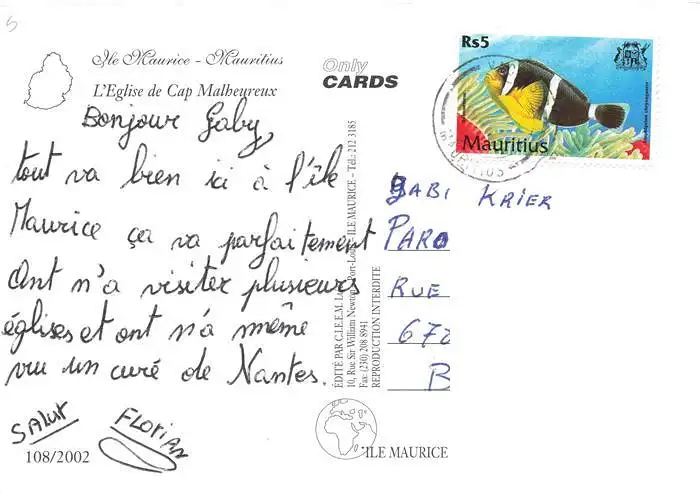 5
Ile Maurice - Mauritius
L'Eglise de Cap Malheureux
Bonjour Gaby,
tout va bien ici à l'île
Maurice ça va parfaitement
Ont n'a visiter plusieurs
églises et ont n'a même
vu un curé de Nantes.
SALUT FLORIAN
108/2002
Only
CARDS
ÉDITÉ PAR C.I.E.E.M.
10, Rue Sir William Newton, Port-Louis, ILE MAURICE - Tél.: 212 3185
Fax: (230) 208 8941
REPRODUCTION INTERDITE
ILE MAURICE
Rs5
Mauritius
MAURITIUS
GABI KRIER
PARO
RUE
672
B